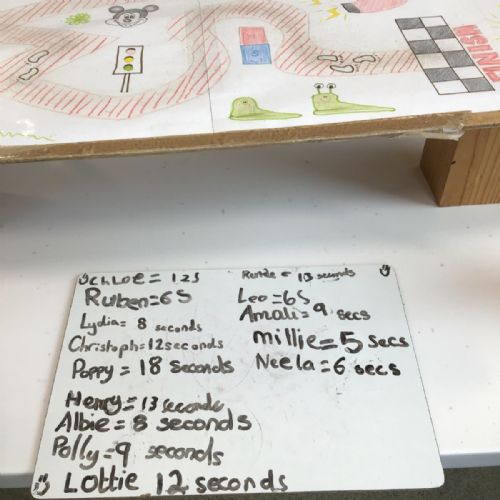 FINISH
Chloe = 12s
Ruben=6S
Lydia= 8 seconds
Christoph=12seconds
Poppy = 18 seconds
Henry=13 seconds
Albie= 8 seconds
Polly=9 seconds
Lottie 12 seconds
= 13 seconds
Leo=6S
Amali=9 secs
millie=5 secs
Neela=6 secs